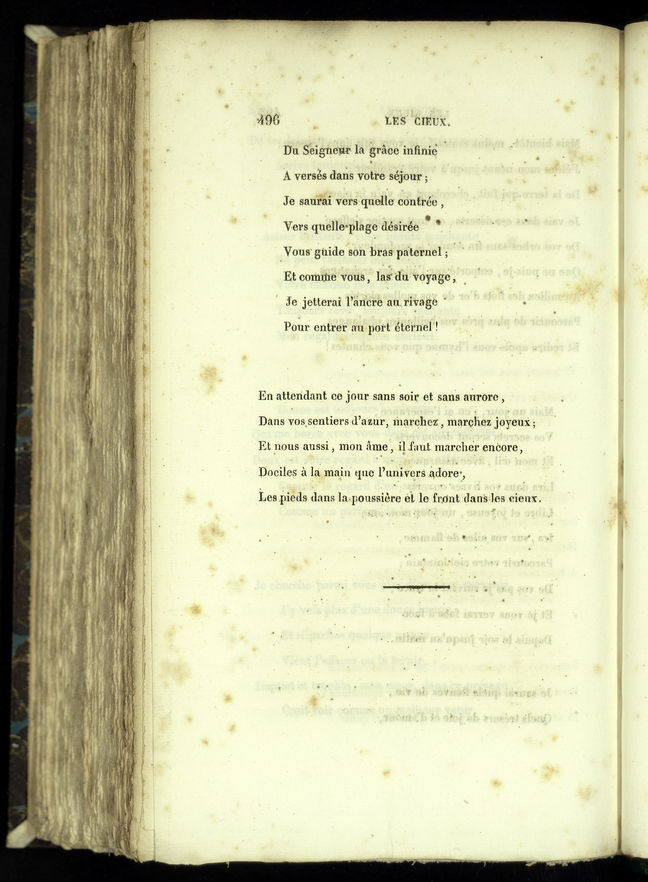 496 LES CIEUX.
Du Seigneur la grâce infinie
A versés dans votre séjour ;
Je saurai vers quelle contrée ,
Vers quelle plage désirée
Vous guide son bras paternel ;
Et comme vous, las du voyage,
Je jetterai l'ancre au rivage
Pour entrer au port éternel !
En attendant ce jour sans soir et sans aurore ,
Dans vos sentiers d'azur, marchez, marchez joyeux ;
Et nous aussi, mon âme, il faut marcher encore,
Dociles à la main que l'univers adore,
Les pieds dans la poussière et le front dans les cieux.